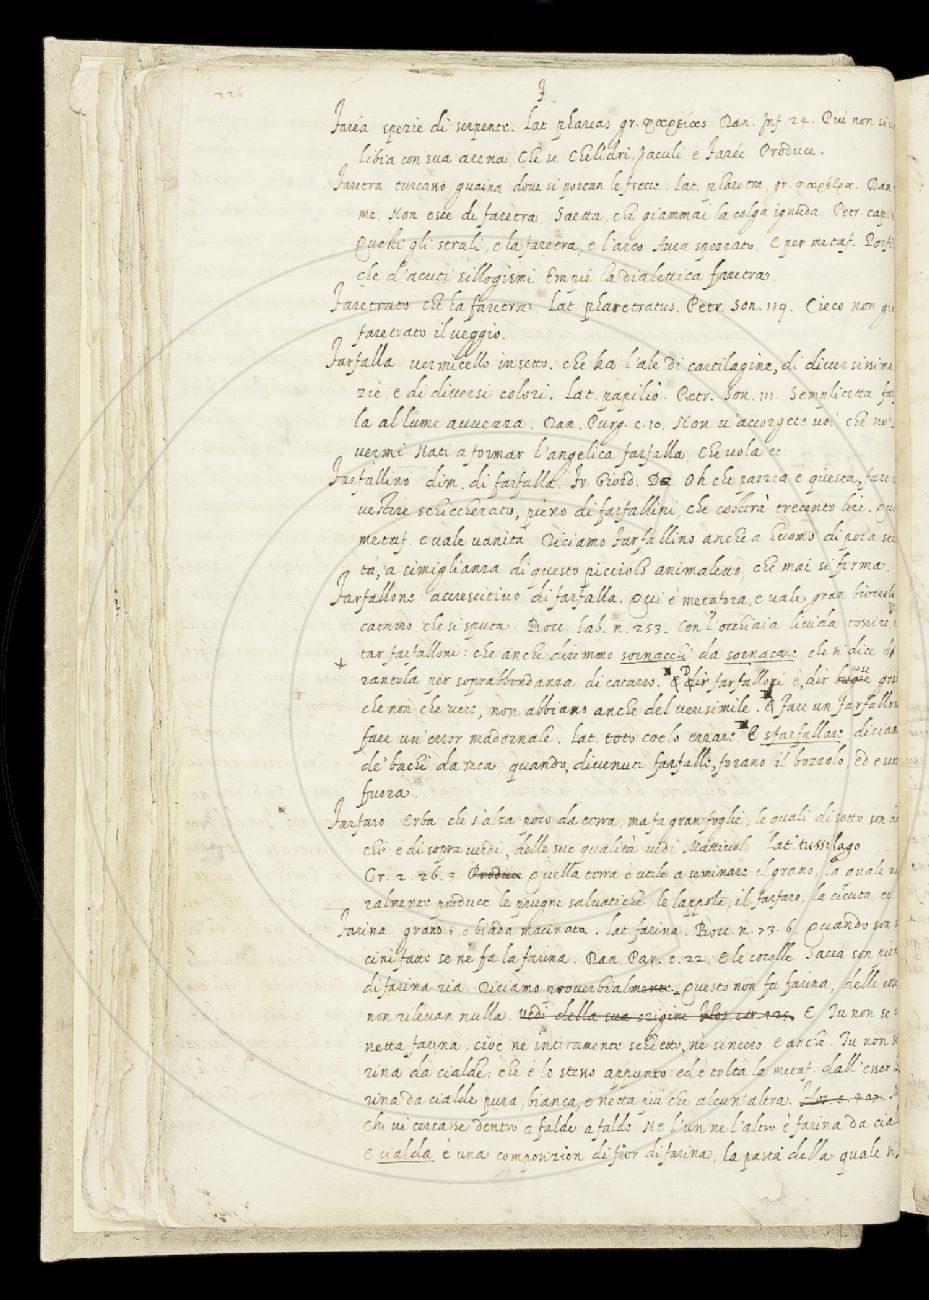 226
F
Faréa spezie di serpente. Lat. phareas gr. φαρείας Dan. Inf. 24. Più non si
libia con sua arena, Chè se Chelidri, Jaculi e Faree Produce.
Faretra turcasso, guaina dove si portan le frecce. Lat. pharetra, gr. φαρέτρα. Dan.
me. Non esce di faretra Saetta, che giammai la colga ignuda. Petr. cap.
Quelli gli strali, e la faretra, e l'arco Avea spezzato. E per metaf.
che d'acuti sillogismi Empie la dialettica faretra.
Faretrato che ha faretra. Lat. pharetratus. Petr. Son. 119. Cieco non
faretrato il veggio.
Farfalla vermicello insetto. che ha l'ale di cartilagine, di diversissime
zie, e di diversi colori. Lat. papilio. Petr. Son. 111. Semplicetta
la al lume avvezza. Dan. Purg. c. 10. Non v'accorgete voi che noi
vermi Nati a formar l'angelica farfalla, Che vola ec
Farfallino dim. di farfalla. Fr. Giord. D. Oh che pazzia è questa, fare
vestire scheccherato, pieno di farfallini, che costerà trecento lire.
metaf. e vale vanità. Diciamo Farfallino anche a huomo di poca
ta, a simiglianza di questo picciolo animaletto, che mai si ferma.
Farfallone accrescitivo di farfalla. Qui è metafora, e vale gran
catarro che si sputa. Bocc. lab. n. 253. Con l'occhiaia livida tossire,
tar farfalloni: che anche diremmo sornacchi da sornacare che si dice
rantola per soprabbondanza di catarro. E dir farfalloni è, dir cose
che non che vere, non abbiano anche del verisimile. E Fare un Farfallone
fare un'error madornale. Lat. toto coelo errare. E sfarfallare
de' bachi da seta, quando, divenuti farfalle, forano il bozzolo, ed
fuora.
Farfaro Erba che s'alza poco da terra, ma fa gran foglie, le quali di sotto son
che e di sopra verdi, delle sue qualità vedi Mattiuolo Lat. tussilago
Cr. 2. 26. 3. Produce Quella terra è utile a seminare il grano, la quale
ralmente produce le prugne salvatiche le lappole, il farfaro, la cicuta,
Farina grano, o biada macinata. Lat. farina. Bocc. n. 73. 6. Quando son
cini fatte se ne fa la farina. Dan. Par. c. 22. E le cocolle Sacca son
di farina ria. Diciamo proverbialmente. Questo non fa farina, delle
non rilevan nulla. vedi della sua origine E Tu non se'
netta farina, cioè nè interamente schietto, nè sincero. e anche. Tu non
rina da cialde: che è lo stesso appunto: ed è tolta la metaf. dall'esser
rina da cialde pura, bianca, e netta più che alcun'altra.
Chi vi cercasse dentro a falde a falde Ne l'un ne l'altro è farina da
E cialda è una composizion di fior di farina, la pasta della quale